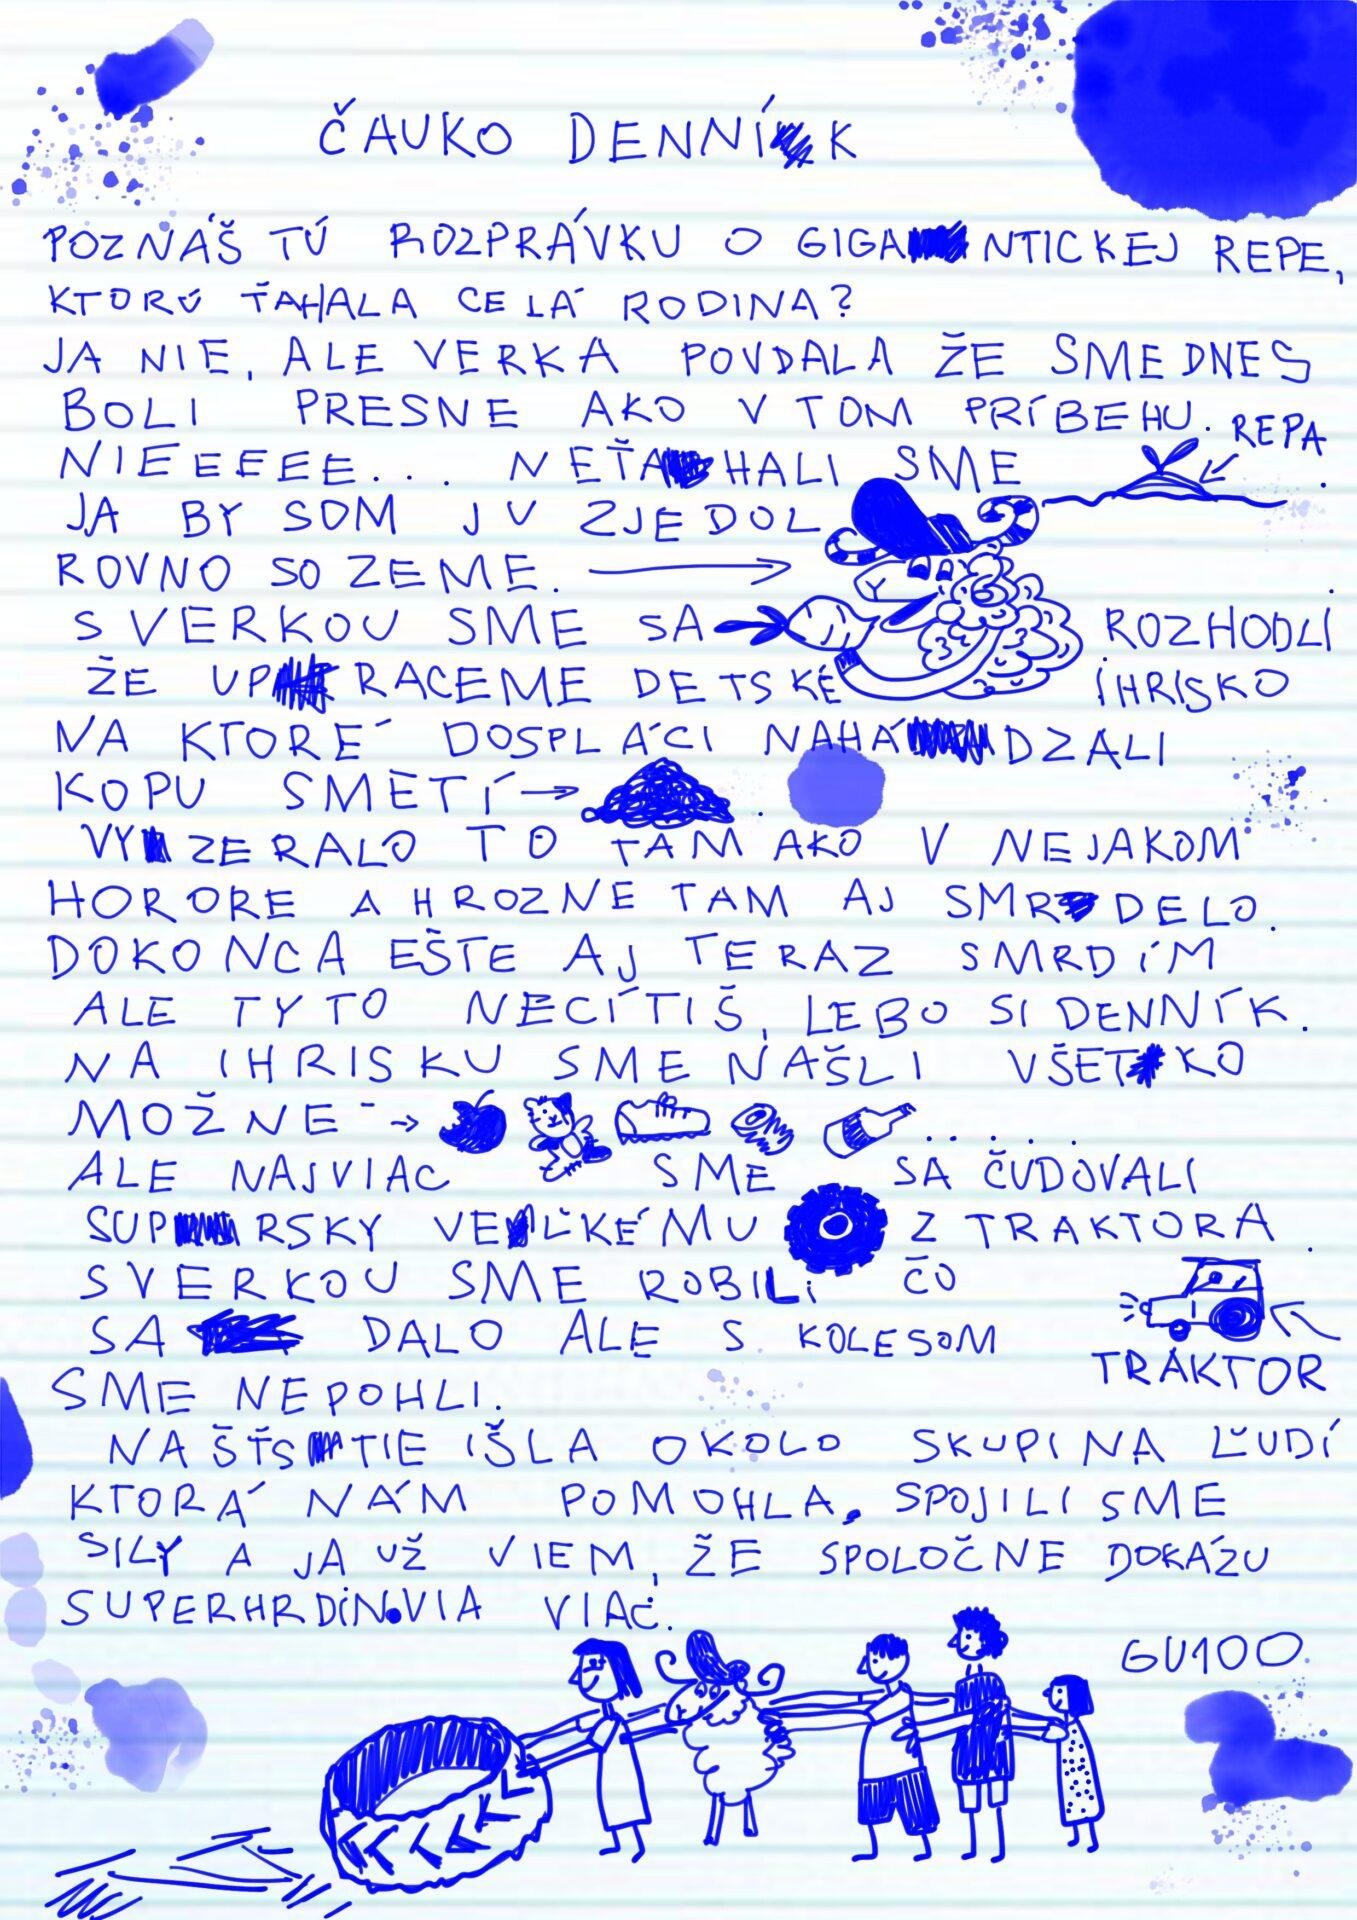 ČAUKO DENNÍK
POZNÁŠ TÚ ROZPRÁVKU O GIGANTICKEJ REPE,
KTORÚ ŤAHALA CELÁ RODINA?
JA NIE, ALE VERKA POVDALA ŽE SME DNES
BOLI PRESNE AKO V TOM PRÍBEHU.
REPA
NIEEEEE... NEŤAHALI SME
JA BY SOM JU ZJEDOL
ROVNO SO ZEME.
S VERKOU SME SA ROZHODLI
ŽE UPRACEME DETSKÉ IHRISKO
NA KTORÉ DOSPLÁCI NAHÁDZALI
KOPU SMETÍ
VYZERALO TO TAM AKO V NEJAKOM
HORORE A HROZNE TAM AJ SMRDELO.
DOKONCA EŠTE AJ TERAZ SMRDÍM
ALE TY TO NECÍTIŠ, LEBO SI DENNÍK.
NA IHRISKU SME NAŠLI VŠETKO
MOŽNÉ ......
ALE NAJVIAC SME SA ČUDOVALI
SUPRSKY VEĽKÉMU Z TRAKTORA.
S VERKOU SME ROBILI ČO
SA DALO ALE S KOLESOM
TRAKTOR
SME NEPOHLI.
NA ŠŤSTIE IŠLA OKOLO SKUPINA ĽUDÍ
KTORÁ NÁM POMOHLA. SPOJILI SME
SILY A JA UŽ VIEM, ŽE SPOLOČNE DOKÁŽU
SUPERHRDINOVIA VIAC.
GU100